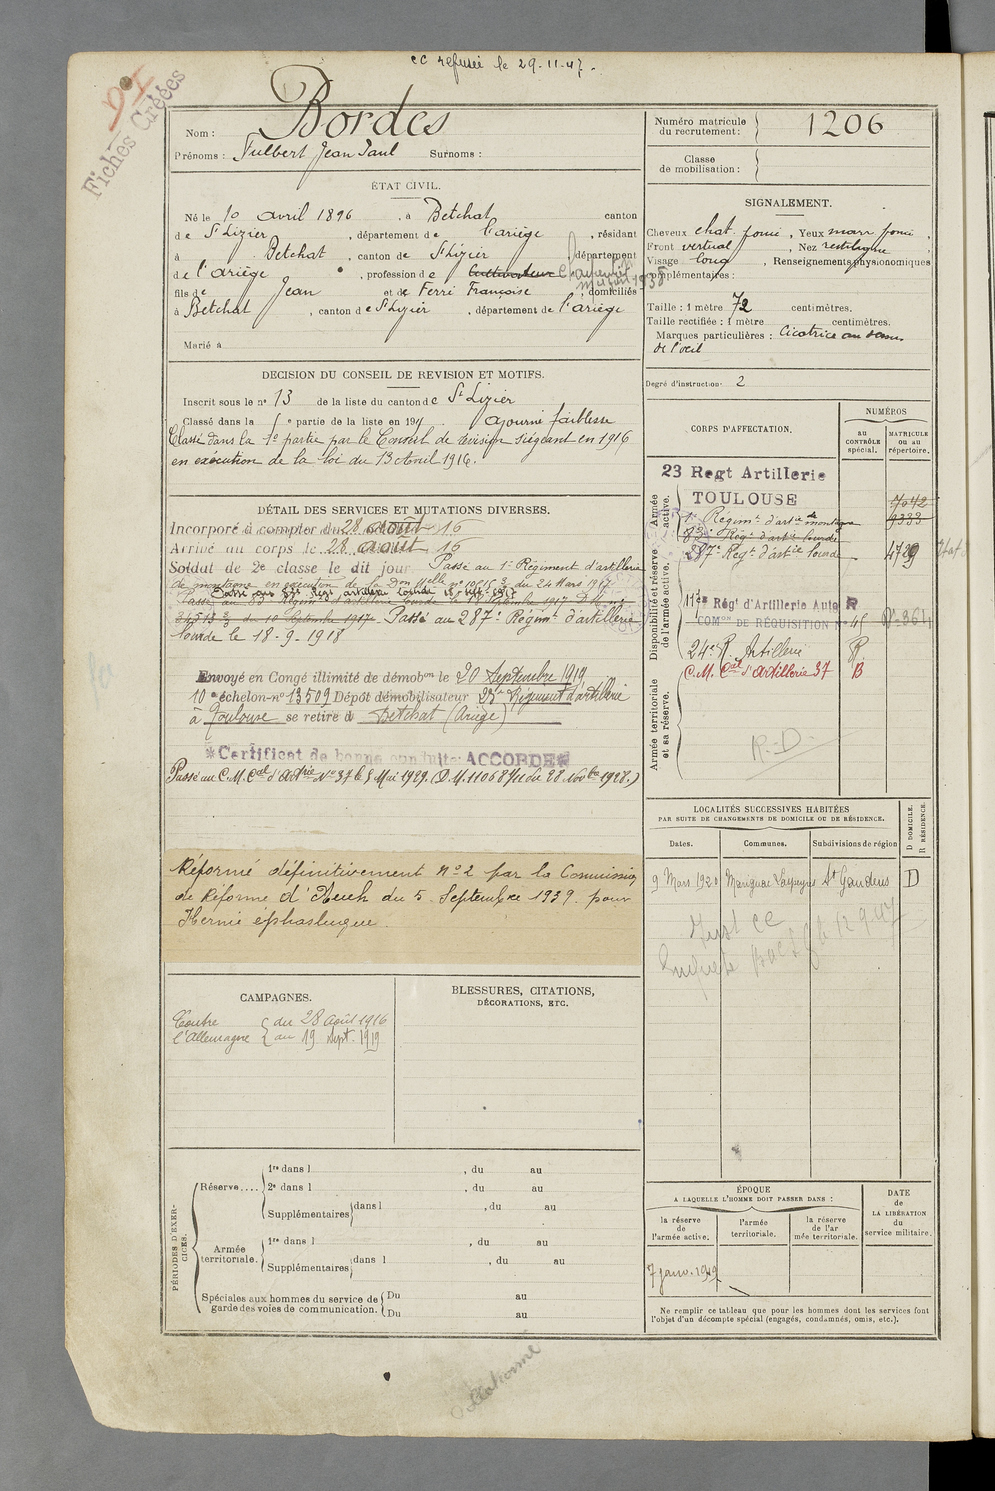 cc refusée le 29-11-47.
Fiches Créées
Nom : Bordes
Prénoms : Fulbert Jean Paul Surnoms :
Numéro matricule du recrutement : 1206
Classe de mobilisation :
ÉTAT CIVIL.
Né le 10 avril 1896 , à Betchat canton
de St Lizier , département de l'ariège , résidant
à Betchat , canton de St Lizier département
de l'ariège , profession de Cultivateur
fils de Jean et de Ferré Françoise , domiciliés
à Betchat , canton de St Lizier , département de l'ariège
Marié à
SIGNALEMENT.
Cheveux chat. foncé , Yeux marr foncé ,
Front vertical , Nez rectiligne
Visage long , Renseignements physionomiques
supplémentaires :
Taille : 1 mètre 72 centimètres.
Taille rectifiée : 1 mètre centimètres.
Marques particulières : Cicatrice au dessus
de l'oeil
Degré d'instruction : 2
DECISION DU CONSEIL DE REVISION ET MOTIFS.
Inscrit sous le n° 13 de la liste du canton de St Lizier
Classé dans la e partie de la liste en 191 ajourné faiblesse
Classé dans la 1e partie par le Conseil de révision siégeant en 1916
en exécution de la loi du 13 Avril 1916.
DÉTAIL DES SERVICES ET MUTATIONS DIVERSES.
Incorporé à compter du 28 août 16
Arrivé au corps le 28 août 16
Soldat de 2e classe le dit jour Passé au 1er Régiment d'artillerie
de montagne en exécution de la Don Mlle n° 10515 3/3 du 24 Mars 1917
Passé au 287e Régimt d'artillerie
lourde le 18-9-1918
Envoyé en Congé illimité de démobon le 20 Septembre 1919
10e échelon-n° 13509 Dépôt démobilisateur 23e Régiment d'artillerie
à Toulouse se retire à Betchat (Ariège)
*Certificat de bonne conduite: ACCORDÉ*
Passé au C.M. Cal d'Artrie N° 37 le 5 Mai 1929. (D.M. 11068 du 28 Novbre 1928.)
Réformé définitivement n°2 par la Commission
de Réforme d'Auch du 5 Septembre 1939 pour
Hernie
CORPS D'AFFECTATION.
NUMÉROS
au CONTRÔLE spécial.
MATRICULE ou au répertoire.
Armée active.
23 Regt Artillerie
TOULOUSE
7042
1er Régimt d'artie de montagne 9333
83e Régt d'artie lourde
Disponibilité et réserve de l'armée active.
287e Régt d'artie lourde 4729
Régt d'Artillerie Auto R
COMon DE RÉQUISITION N° 45
24e R. Artillerie R
C.M. Cal d'Artillerie 37 B
Armée territoriale et sa réserve.
R.D.
LOCALITÉS SUCCESSIVES HABITÉES
PAR SUITE DE CHANGEMENTS DE DOMICILE OU DE RÉSIDENCE.
Dates. Communes. Subdivisions de région D DOMICILE. R RÉSIDENCE.
9 Mars 1920 Marignac Laspeyres St Gaudens D
CAMPAGNES.
Contre l'Allemagne { du 28 Août 1916
au 19 Sept. 1919
BLESSURES, CITATIONS,
DÉCORATIONS, ETC.
PÉRIODES D'EXERCICES.
Réserve.... 1re dans l , du au
2e dans l , du au
Supplémentaires dans l , du au
Armée territoriale. 1re dans l , du au
Supplémentaires dans l , du au
Spéciales aux hommes du service de garde des voies de communication. Du au
Du au
ÉPOQUE
A LAQUELLE L'HOMME DOIT PASSER DANS :
la réserve de l'armée active.
l'armée territoriale.
la réserve de l'armée territoriale.
DATE de LA LIBÉRATION du service militaire.
Ne remplir ce tableau que pour les hommes dont les services font
l'objet d'un décompte spécial (engagés, condamnés, omis, etc.).